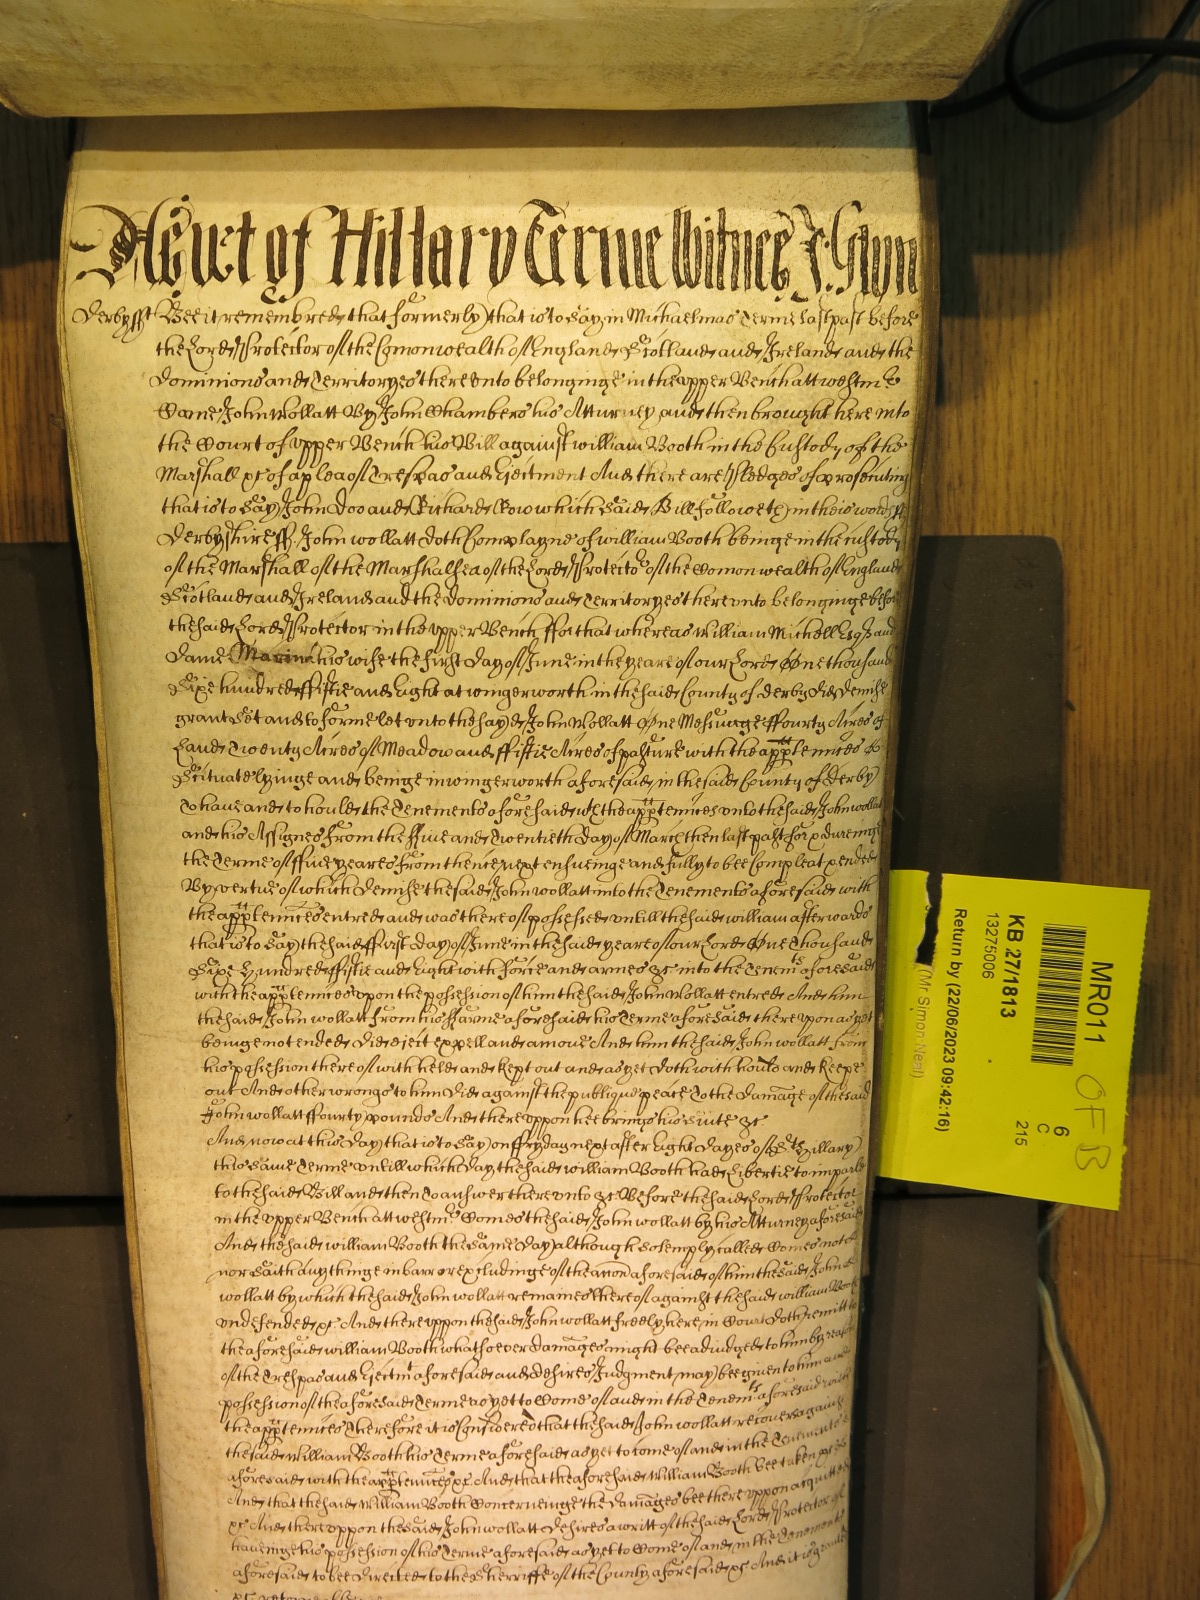 As yet of Hillary Terme Witnes J: Glyn
Derbysh Bee it remembred that formerly that is to say in Michaelmas Terme last past before
the Lord Protector of the Comonwealth of England Scotland and Ireland and the
Dominions and Territoryes thereunto belonginge in the upper Bench att westmr
Came John Wollatt By John Chambers his Atturney and then brought here into
the Court of upper Bench his Bill against william Booth in the Custody of the
Marshall &c of a plea of Trespas and Ejectment And there are Pledges of prosecuting
that is to say John Doo and Richard Row which said Bill followeth in theis words ss
Derbyshire ss John wollatt doth Complayne of william Booth beinge in the custody
of the Marshall of the Marshalsea of the Lord Protector of the Comonwealth of England
Scotland and Ireland and the Dominions and Territoryes thereunto belonginge before
the said Lord Protector in the upper Bench ffor that whereas William Michell Esqr and
Dame his wife the first day of June in the yeare of our Lord One thousand
Sixe hundred ffiftie and Eight at wingerworth in the said County of Derby did demise
grant Set and to farme let unto the sayd John Wollatt One Messuage ffourty Acres of
Land Twenty Acres of Meadow and ffiftie Acres of pasture with the apptennces
Scituate lyinge and beinge in wingerworth aforesaid in the said County of Derby
To have and to hould the Tenements aforesaid wth the apptennces unto the said John wollatt
and his Assignes from the ffive and Twentieth day of March then last past for & dureinge
the Terme of ffive yeares from thence next ensueinge and fully to bee Compleat & ended
By vertue of which demise the said John wollatt into the Tenements aforesaid with
the apptennces entred and was thereof possessed untill the said william afterwards
that is to say the said ffirst day of June in the said yeare of our Lord One Thousand
Sixe hundred ffiftie and Eight with force and armes &c into the Tenemts aforesaid
with the apptennces upon the possession of him the said John Wollatt entred And him
the said John wollatt from his ffarme aforesaid his Terme aforesaid thereupon as yet
beinge not ended did eject expell and amove And him the said John wollatt from
his possession thereof with held and kept out and as yet doth with hould and keepe
out And other wrongs to him did against the publique peace To the damage of the said
John wollatt ffourty pounds And thereuppon hee brings his suite &c
And now at this day that is to say on ffryday next after Eight dayes of St Hillary
this same Terme untill which day the said william Booth had Libertie to imparle
to the said Bill and then to answer thereunto &c Before the said Lord Protector
in the upper Bench att westmr Comes the said John wollatt by his Atturney aforesaid
And the said william Booth the same day although solemply called Comes not
nor saith anythinge in barr or excludinge of the accon aforesaid of him the said John
wollatt by which the said John wollatt remaines thereof against the said william Booth
undefended &c And thereuppon the said John wollatt freely here in Court doth remitt to
the aforesaid william Booth whatsoever damages might bee adjudged to him by reason
of the Trespas and Ejectmt aforesaid and desires Judgment may bee given to him and
possession of the aforesaid Terme as yet to Come of and in the Tenemts aforesaid with
the apptennces Therefore it is Considered that the said John wollatt recover against
the said William Booth his Terme aforesaid as yet to come of and in the Tenements
aforesaid with the apptennces &c And that the aforesaid William Booth bee taken &c
And that the said William Booth Concerneinge the damages bee thereuppon acquitted
&c And thereuppon the said John wollatt desires a writt of the said Lord Protector of
haveinge his possession of his Terme aforesaid as yet to Come of and in the Tenements
aforesaid to bee directed to the Sherriffe of the County aforesaid &c And it is granted
MR011
OFB
6
C
215
KB 27/1813
13275006
Return by (22/06/2023 09:42:16)
(Mr Simon Neal)